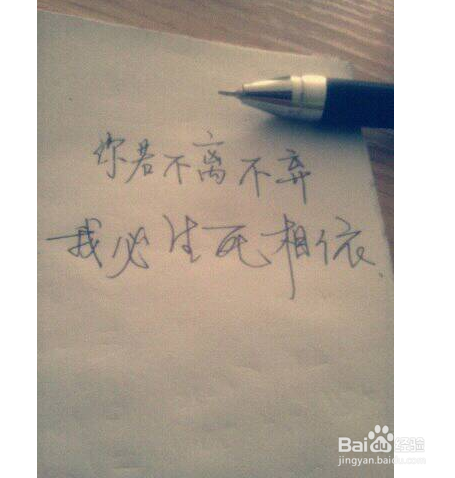 你若不离不弃
我必生死相依.
Baidu经验
jingyan.baidu.com